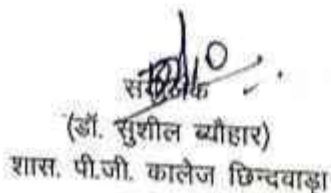 (डॉ. सुशील ब्यौहार)
शास. पी.जी. कालेज छिन्दवाड़ा